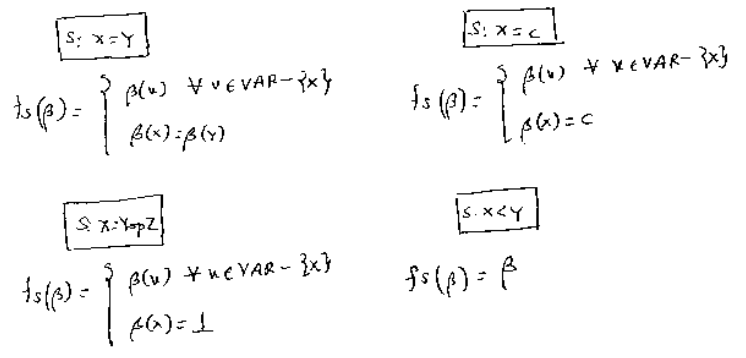 S: X=Y
fs(β) = { β(u) ∀ u ∈ VAR - {X}
β(X) = β(Y)
S: X = C
fs(β) = { β(u) ∀ u ∈ VAR - {X}
β(X) = C
S: X=Y op Z
fs(β) = { β(u) ∀ u ∈ VAR - {X}
β(X) = ⊥
S: X<Y
fs(β) = β